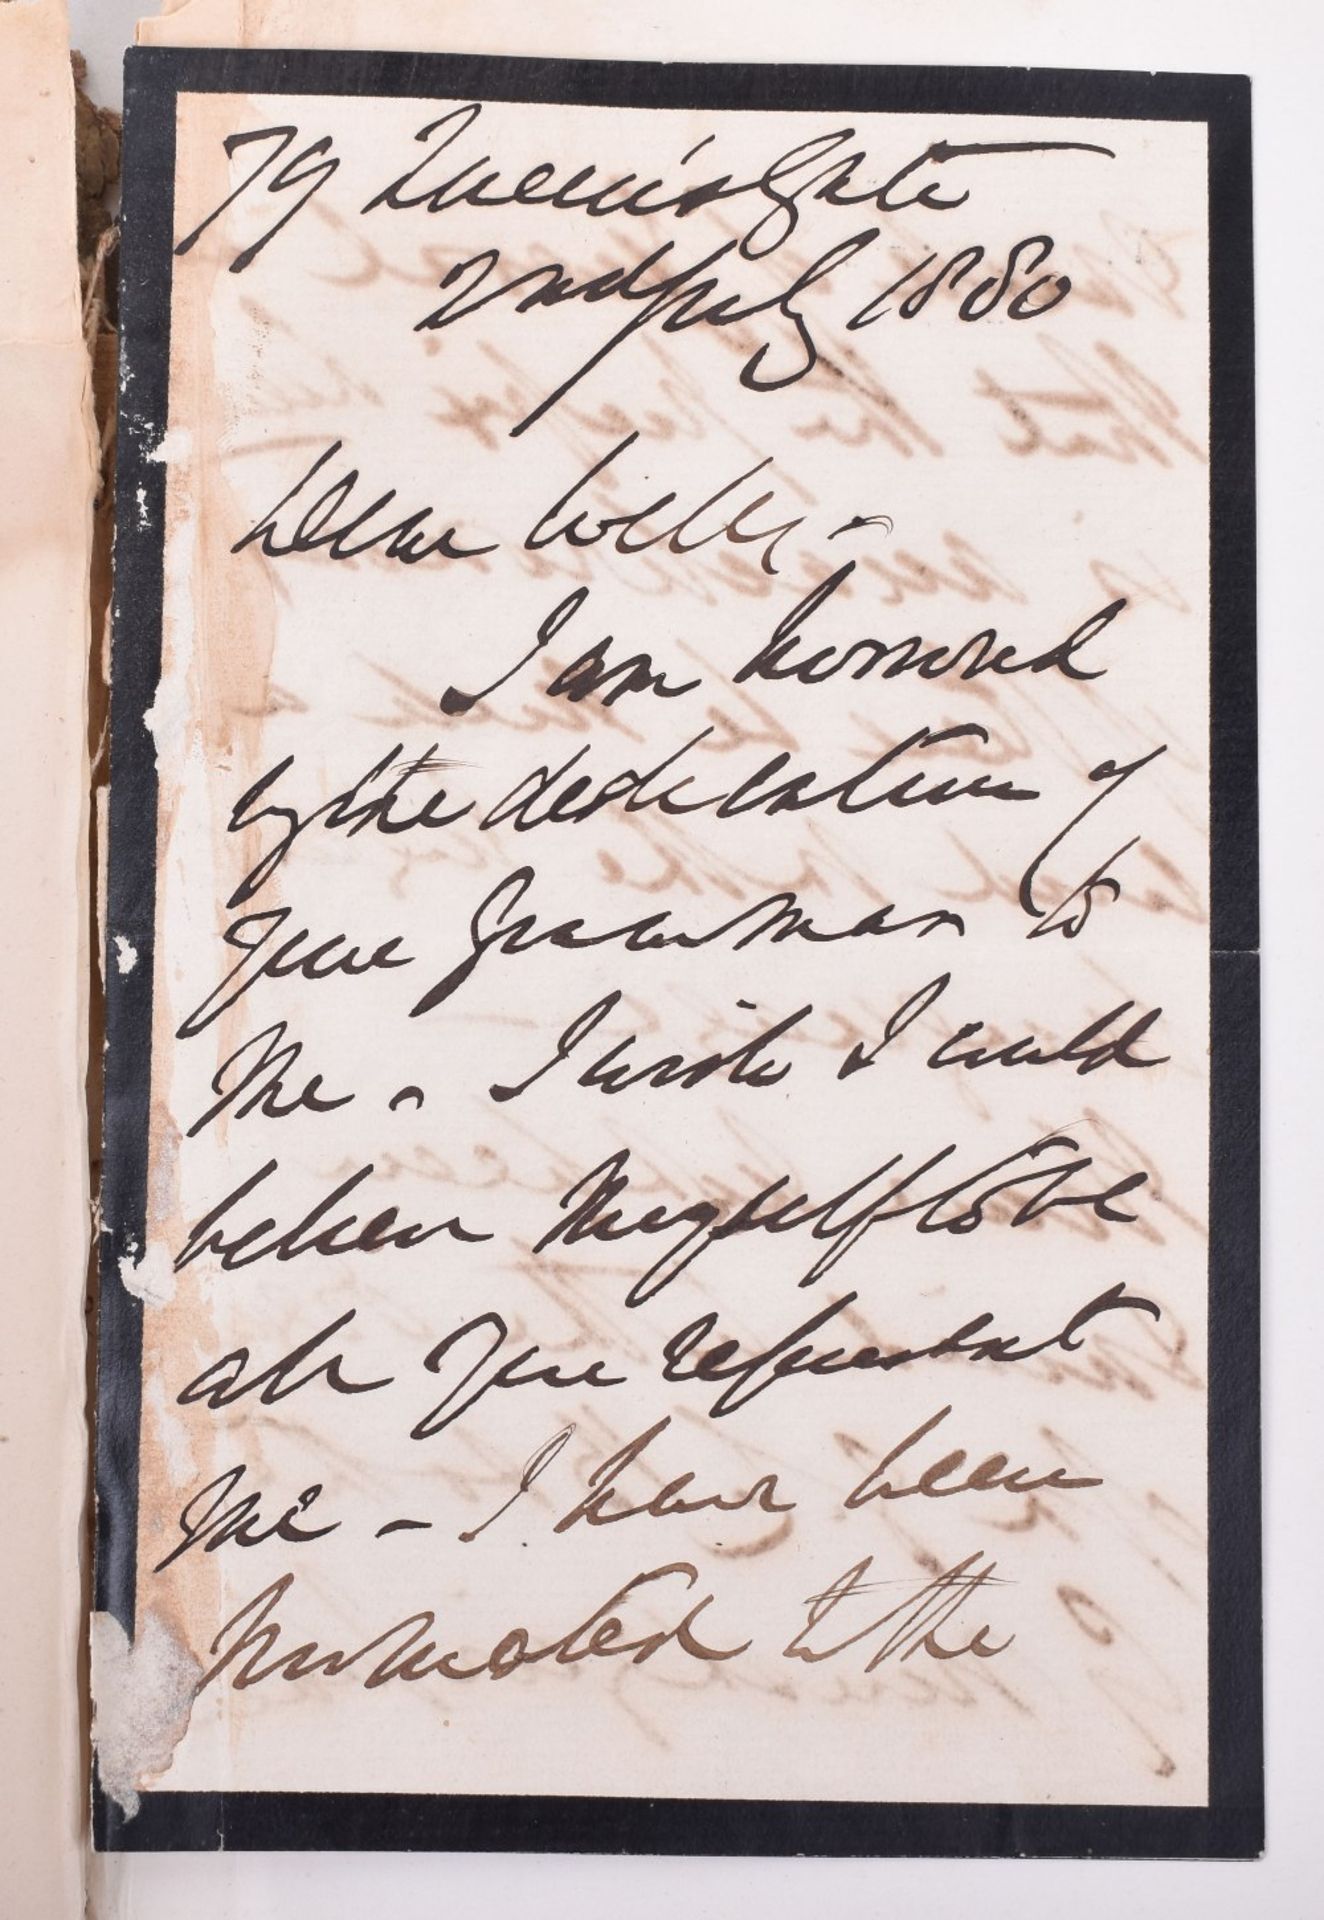 79 Queen's Gate
2nd July 1880
Dear Wells -
I am honored
by the dedication of
your Grammar to
me - I wish I could
believe myself to be
all you represent
me - I have been
promoted to the